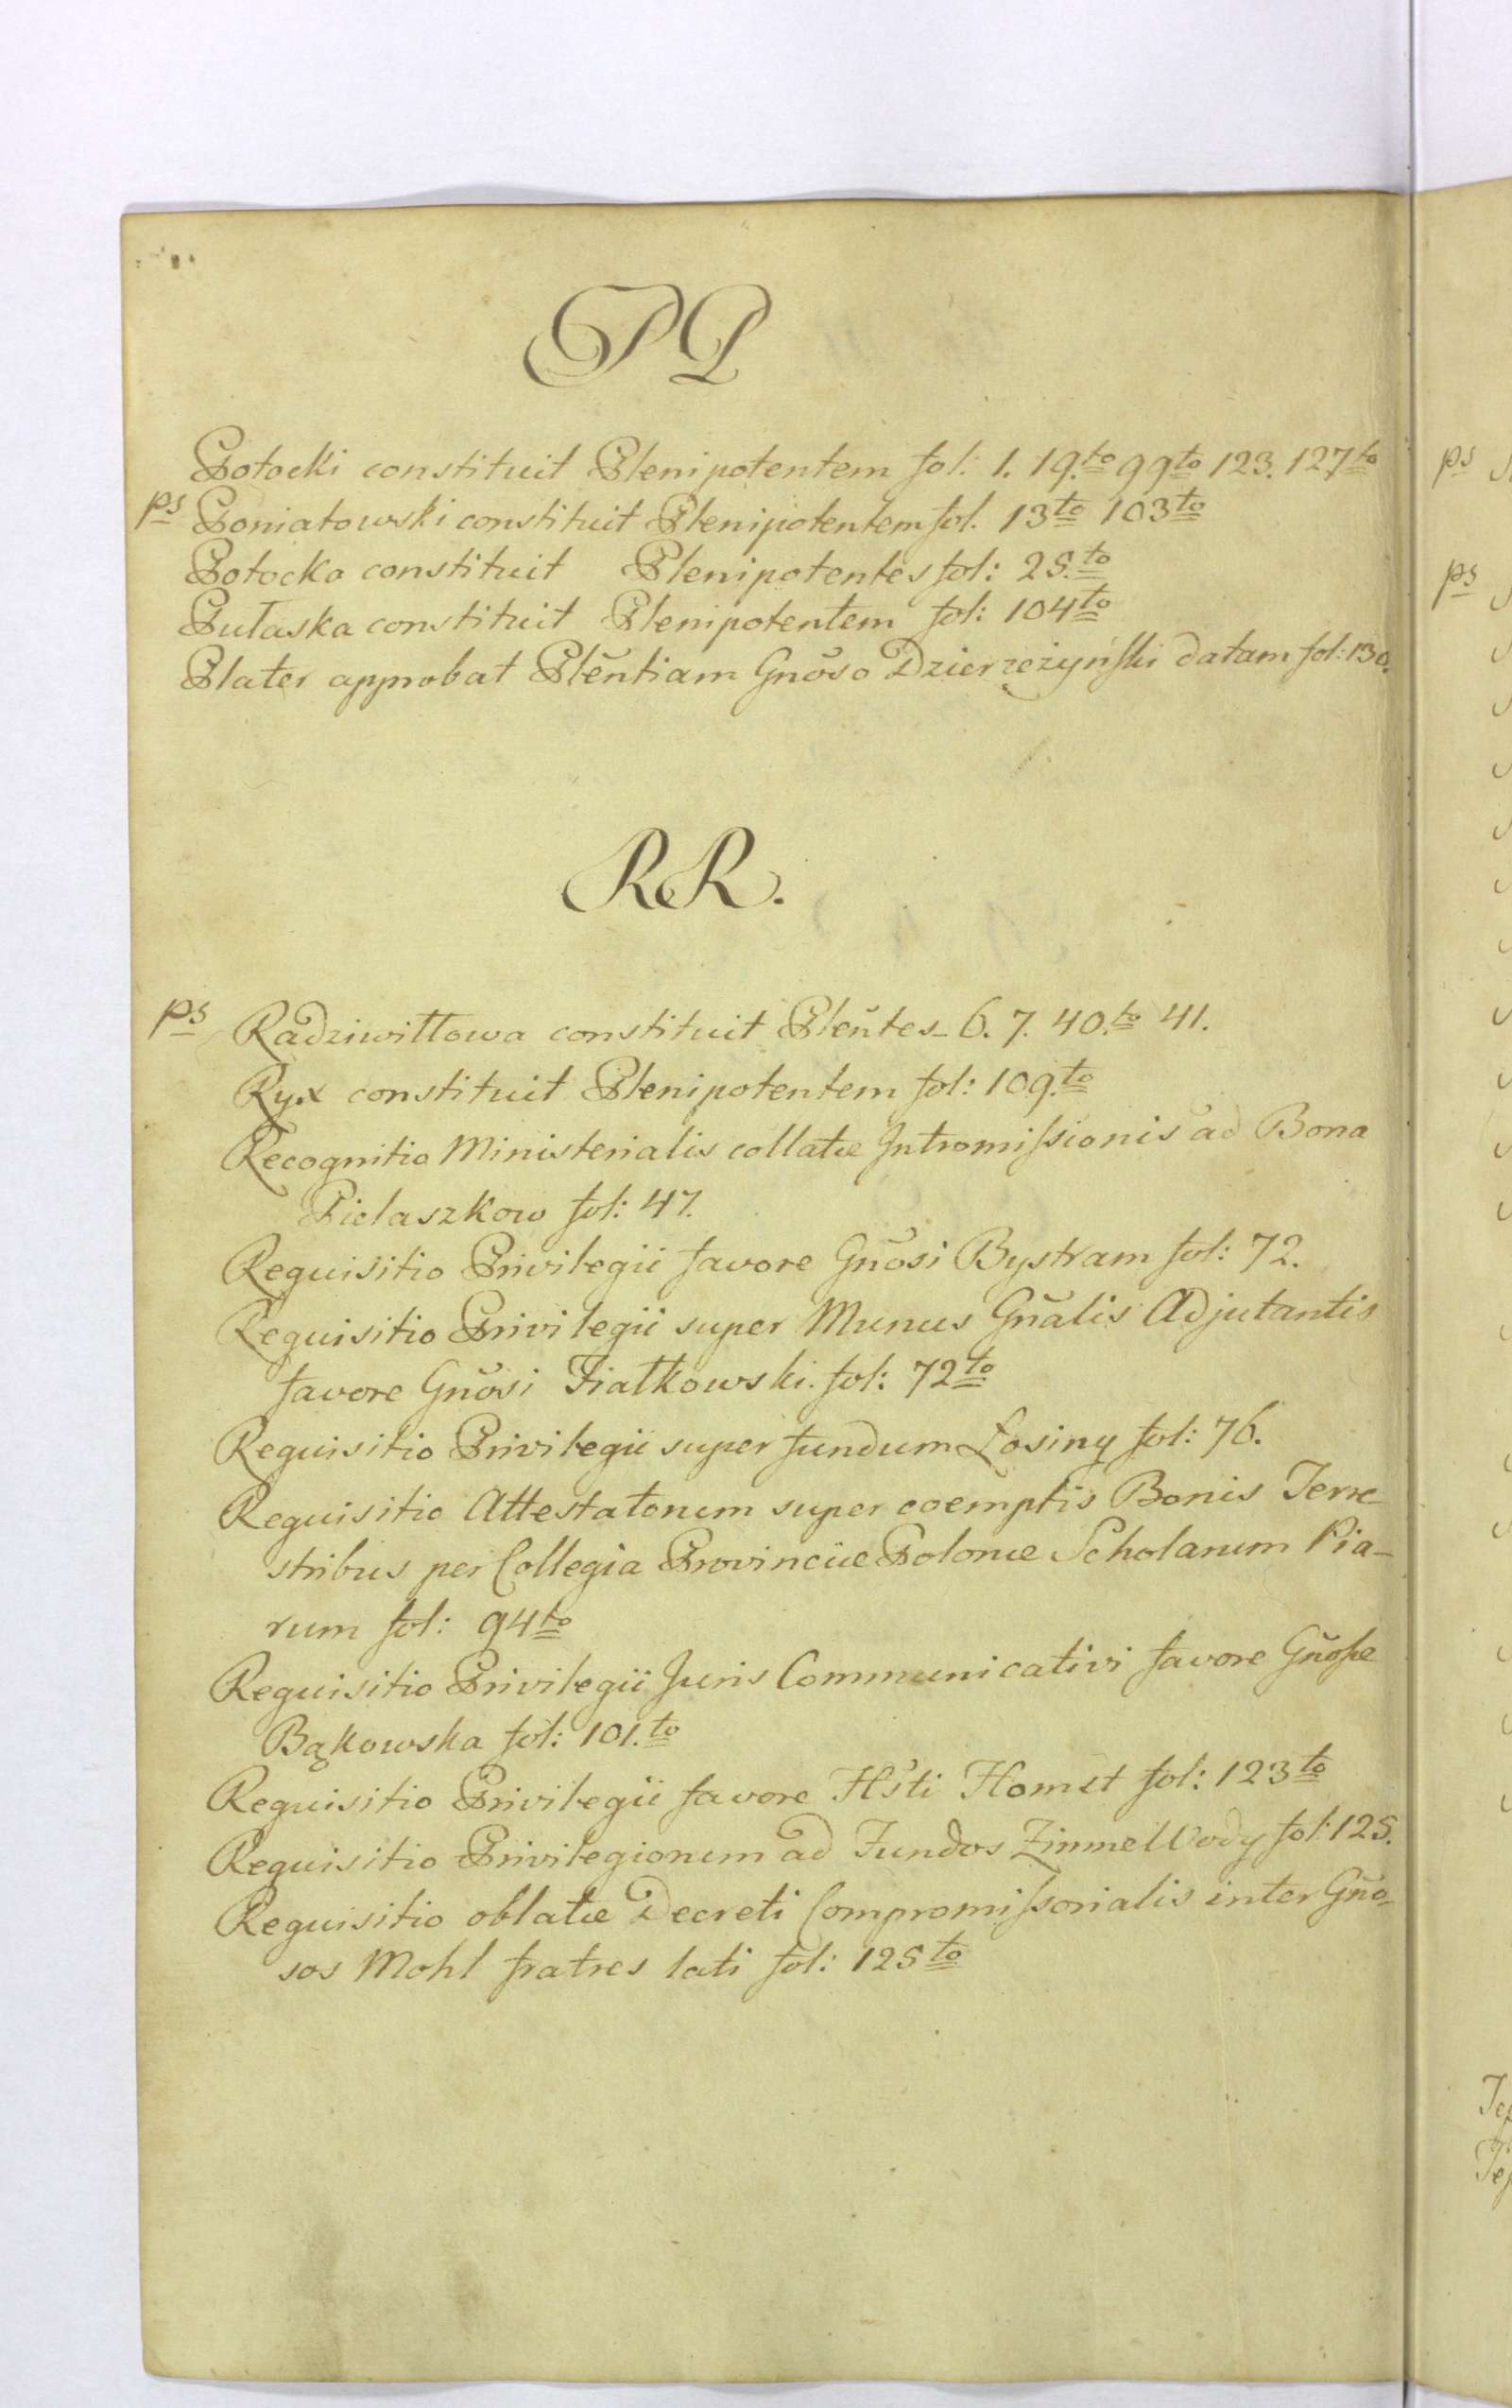 PP
Potocki constituit Plenipotentem fol: 1. 19.to 99to 123. 127to
ps Poniatowski constituit Plenipotentem fol. 13to 103to
Potocka constituit Plenipotentes fol: 25.to
Pułaska constituit Plenipotentem fol: 104to
Plater approbat Plẽntiam Gnõso Dzierzężyński datam fol: 130.
RR.
ps Radziwiłłowa constituit Pleñtes 6. 7. 40.to 41.
Ryx constituit Plenipotentem fol: 109.to
Recognitio Ministerialis collatæ Intromissionis ad Bona
Pielaszkow fol: 47.
Requisitio Privilegii favore Gñosi Bystram fol: 72.
Requisitio Privilegii super Munus Gñalis Adjutantis
favore Gñosi Fiałkowski. fol: 72to
Requisitio Privilegii super fundum Łosiny fol: 76.
Requisitio Attestatorum super coemptis Bonis Terre-
stribus per Collegia Provinciæ Polonæ Scholarum Pia-
rum fol: 94to
Requisitio Privilegii Juris Communicativi favore Gñosæ
Bąkowska fol: 101.to
Requisitio Privilegii favore Hs̃ti Homet fol: 123to
Requisitio Privilegiorum ad Fundos Zimne Wody fol: 125.
Requisitio oblatæ Decreti Compromissorialis inter Gño-
sos Mohl fratres lati fol: 125to
ps
ps